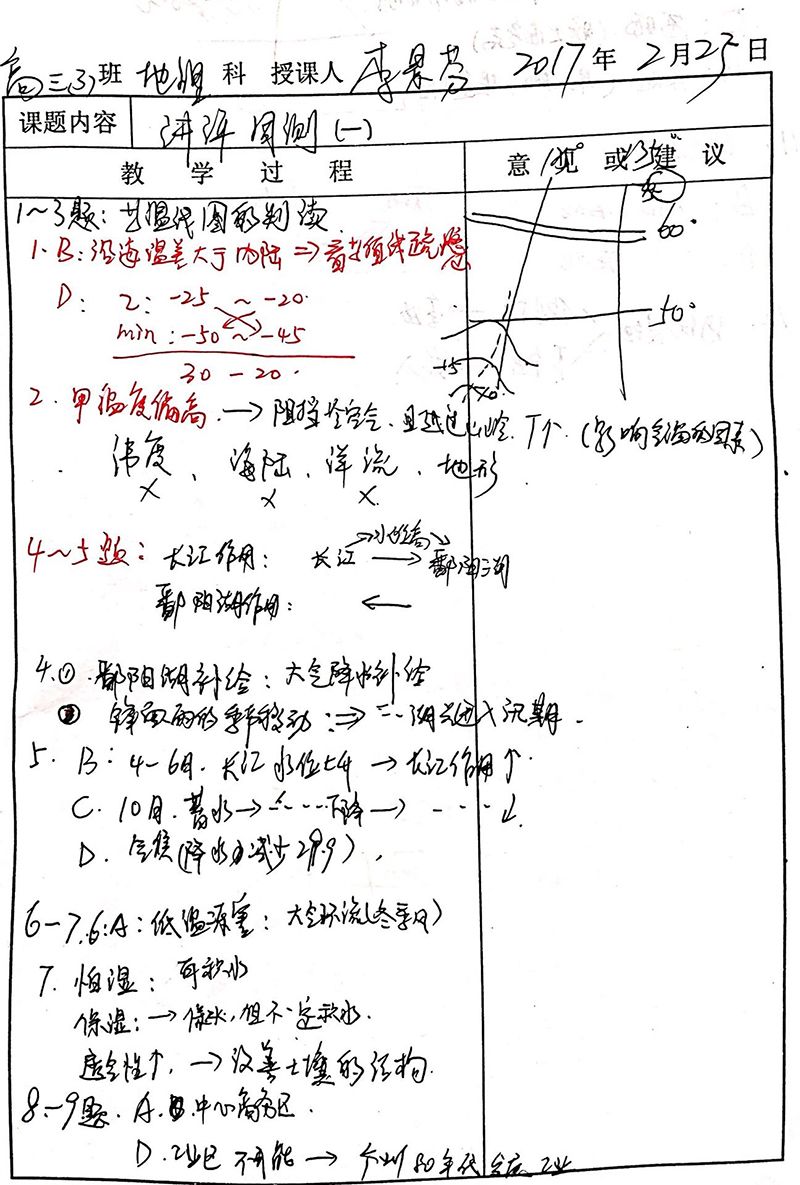 高三(3)班 地理 科 授课人 李景芬 2017年2月25日
课题内容 讲评周测(一)
教学过程 意见或建议
1~3题:等温线图的判读.
120° 130°
60°
50°
1. B:沿海温差大于内陆⇒等值线
D: Z: -25 ~ -20.
min: -50 ~ -45
30 - 20.
2. 甲温度偏高.→阻挡冷空气.且越过山岭.T↑.(影响气温的因素)
纬度、海陆、洋流、地形
× × ×
4~5题: 长江作用: 长江 → 鄱阳湖
鄱阳湖作用: ←
4.①.鄱阳湖补给:大气降水补给
② 锋面雨的季节移动:⇒ 湖进入汛期.
5. B: 4-6月.长江水位上升→长江作用↑.
C. 10月.蓄水→ ----下降→ ---- ↓.
D. 气候(降水为减少 7、8、9).
6-7.6:A:低温冻害:大气环流(冬季风)
7. 怕湿: 耳积水
保湿:→保水,但不一定积水.
透气性↑,→改善土壤的结构.
8~9题. A.B.中心商务区.
D.工业区 不可能→ 80年代 工业